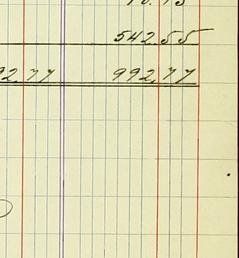 542.55
92.77 992.77